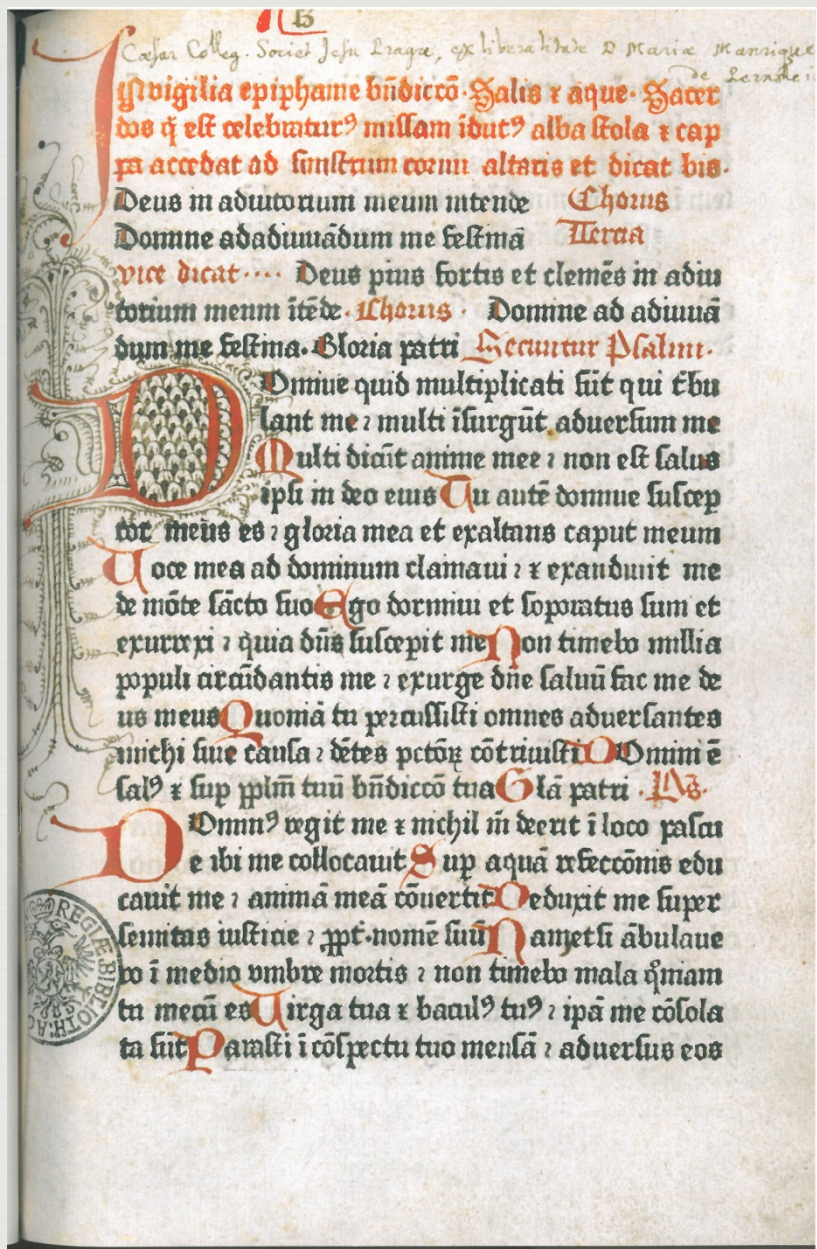 13
Cæsar. Colleg. Societ Jesu Pragæ, ex liberalitate D Mariæ Manrique
de Pernstei
In vigilia epiphanie bn̄diccō · Salis ⁊ aque · Sacer
dos q̄ est celebraturꝰ missam īdutꝰ alba stola ⁊ cap
pa accedat ad sinistrum cornu altaris et dicat bis ·
Deus in adiutorium meum intende Chorus
Domine ad adiuuādum me festinā Tercia
vice dicat · · · · Deus pius fortis et clemēs in adiu
torium meum ītēde · Chorus · Domine ad adiuuā
dum me festina · Gloria patri Secuntur Psalmi ·
DOmine quid multiplicati sūt qui tˀbu
lant me ⁊ multi īsurgūt aduersum me
Multi dicūt anime mee ⁊ non est salus
ipsi in deo eius Tu autē domine suscep
tor meus es ⁊ gloria mea et exaltans caput meum
Uoce mea ad dominum clamaui ⁊ ⁊ exaudiuit me
de mōte sācto suo Ego dormiui et soporatus sum et
exurrexi ⁊ quia dn̄s suscepit me Non timebo millia
populi circūdantis me ⁊ exurge dn̄e saluū fac me de
us meus Quoniā tu percussisti omnes aduersantes
michi sine causa ⁊ dētes pctōꝝ cōtriuisti DOmini ē
salꝰ ⁊ sup̄ ppl̄m tuū bn̄diccō tua Gl̄a patri · Ps̄ ·
DOminꝰ regit me ⁊ nichil m̄ deerit ī loco pascu
e ibi me collocauit Sup̄ aquā refeccōnis edu
cauit me ⁊ animā meā cōuertit Deduxit me super
semitas iusticie ⁊ ꝓpt̄ · nomē suū Nam etsi ābulaue
ro ī medio vmbre mortis ⁊ non timebo mala qm̄iam
tu mecū es Uirga tua ⁊ baculꝰ tuꝰ ⁊ ipā me cōsola
ta sūt Parasti ī cōspectu tuo mensā ⁊ aduersus eos
REGIÆ BIBLIOTH: AC